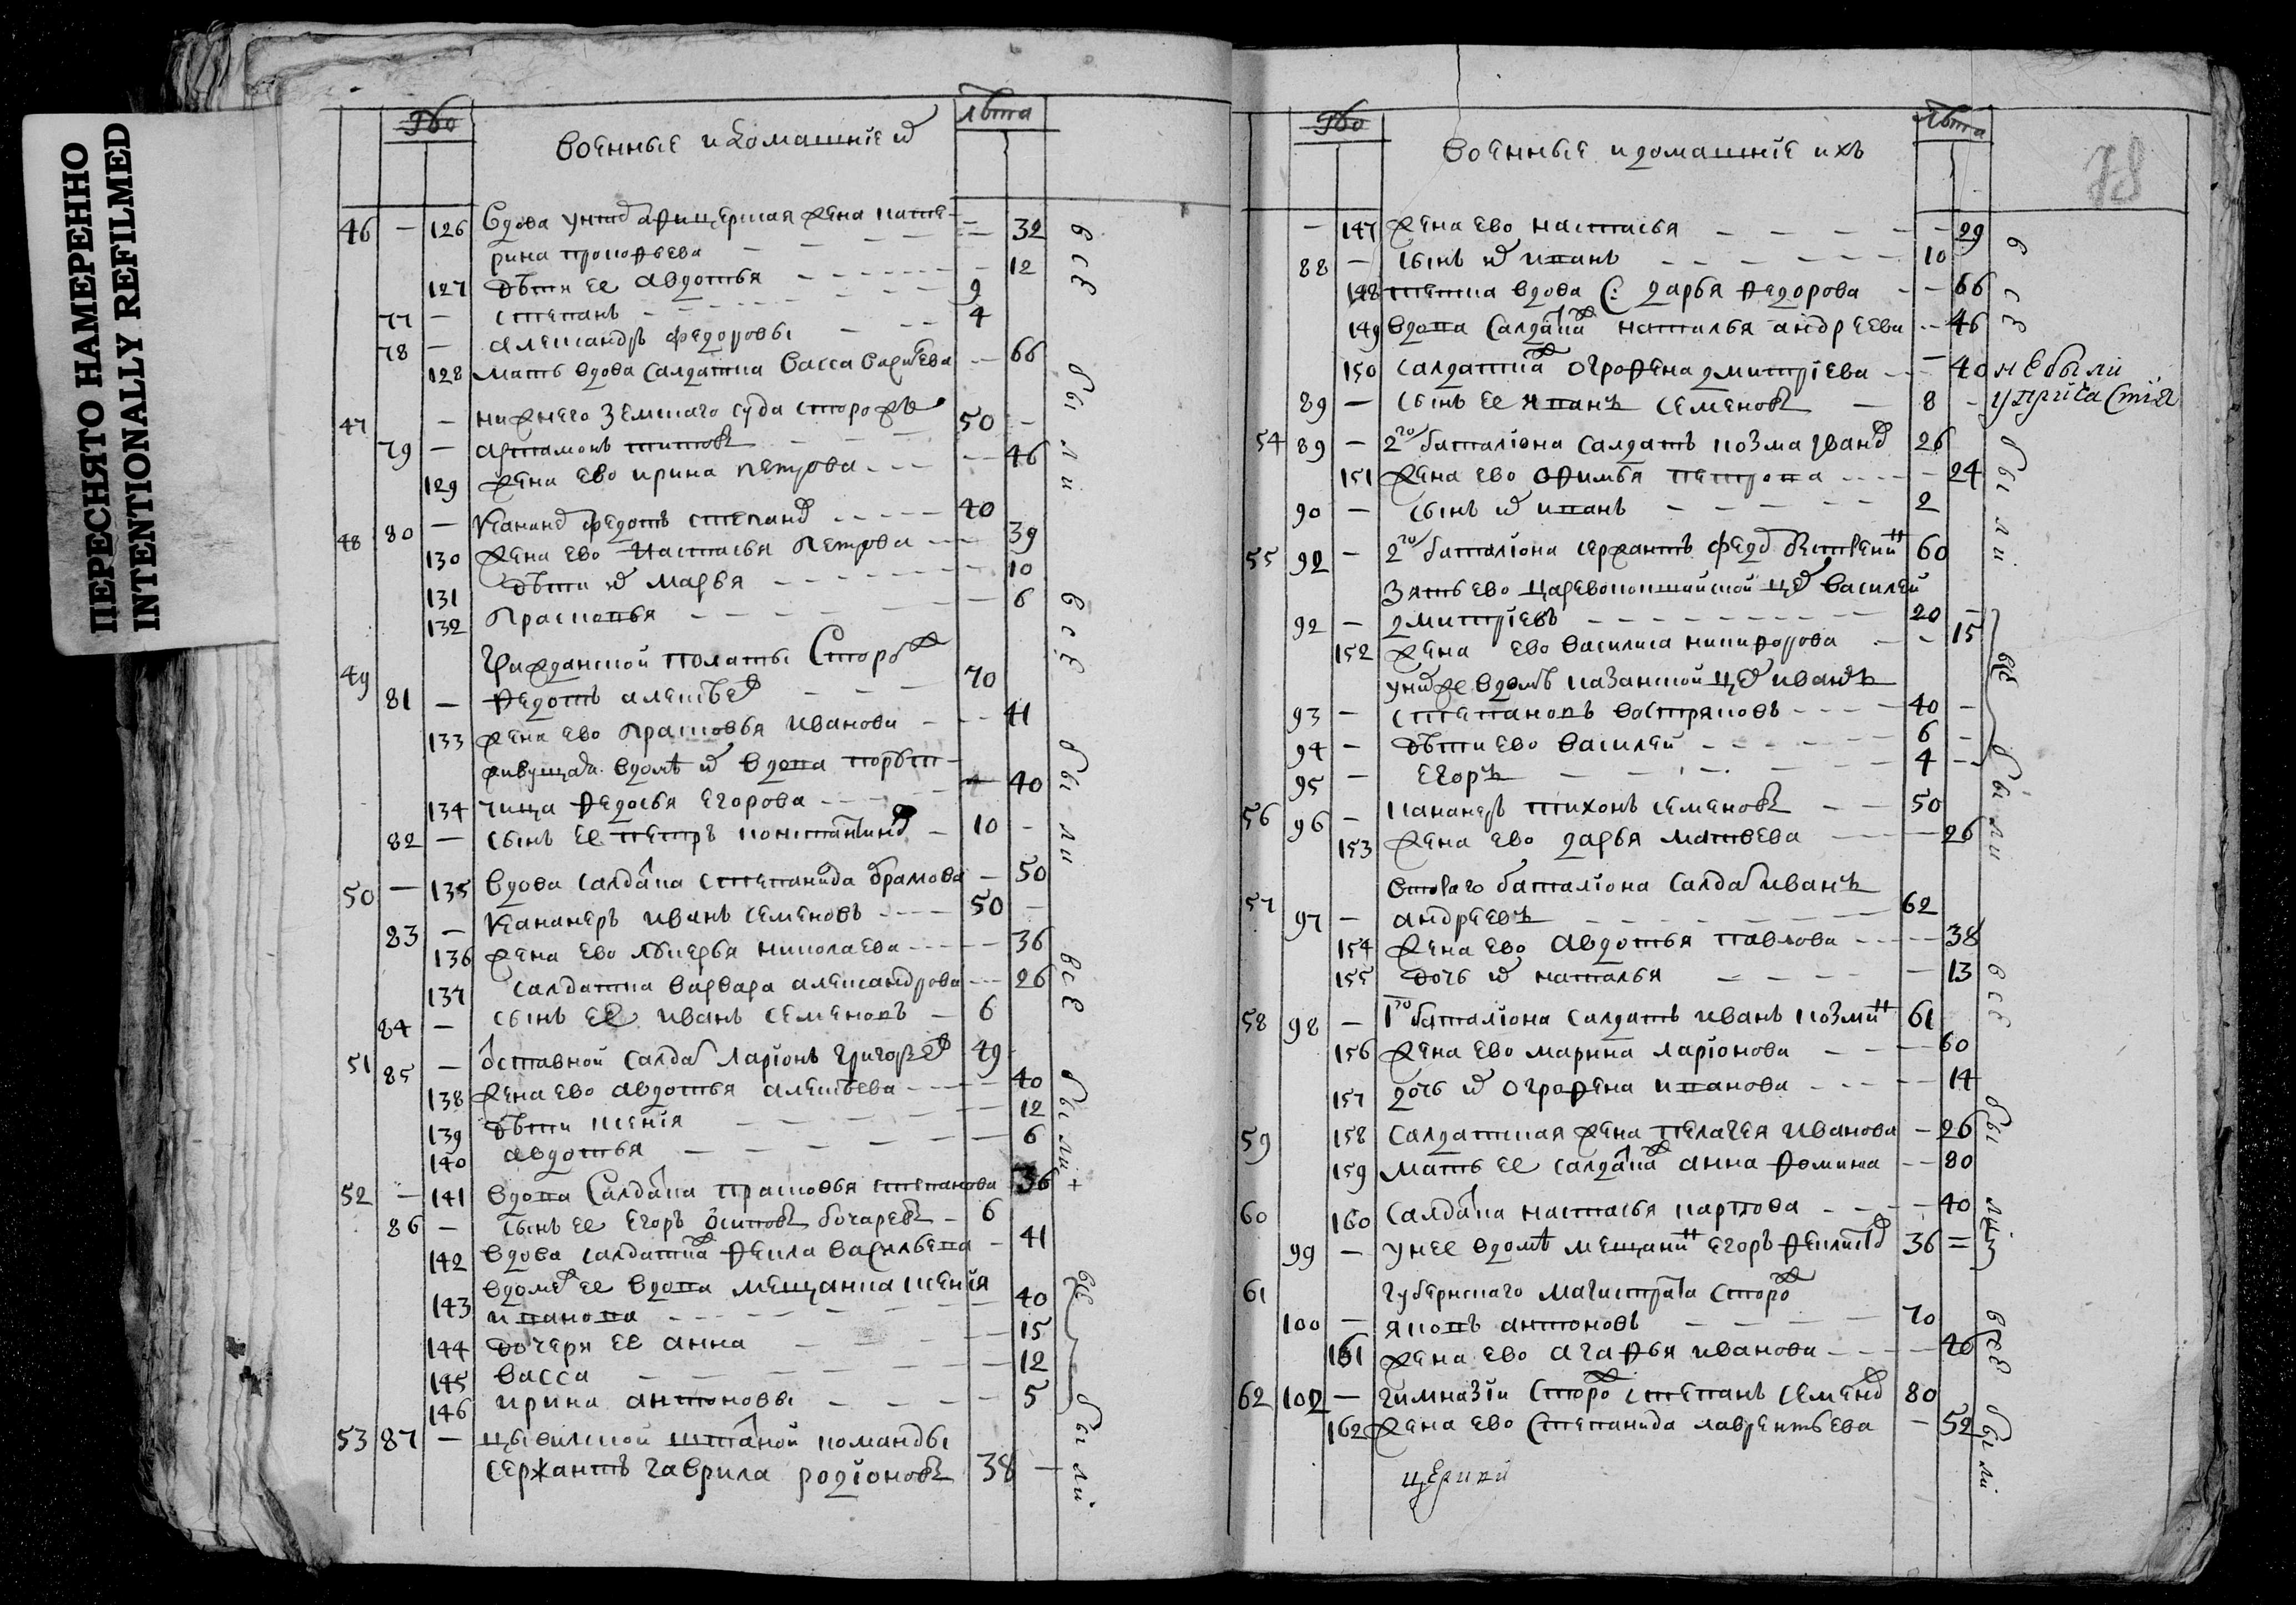 ПЕРЕСНЯТО НАМЕРЕННО
INTENTIONALLY REFILMED
лѣта
военные и домашнiе и
46 — 126 вдова унт афицерская жена кате-
рина прокофьева — 32
127 дѣти ее авдотья — 12
77 — степанъ 9
78 — александръ федоровы 4
128 мать вдова салдатка васса — 66
все были
47 — нижнего земскаго суда сторожъ 50 —
79 — артамонъ титовъ
129 жена ево ирина петрова — 46
48 80 — канан федотъ степано 40
130 жена ево настасья петрова — 39
131 дѣти и марья — 10
132 прасковья — 6
все
49 гражданской полаты сторож
81 — федотъ алексѣе 70
133 жена ево прасковья иванова — 41
живущая вдомѣ и вдова порт-
134 чища федосья егорова — 40
82 — сынъ ее петръ константино 10 —
были
50 — 135 вдова салдатка степанида абрамова — 50
83 — кананеръ иванъ семеновъ 50 —
136 жена ево лукерья николаева — 36
137 салдатка варвара александрова — 26
84 — сынъ ее иванъ семеновъ 6
все
51 85 — отставной салда ларiонъ григорье 49
138 жена ево авдотья алексѣева — 40
139 дѣти ксенiя — 12
140 авдотья — 6
были
52 — 141 вдова салдатка прасковья степанова 36 +
86 — сынъ ее егоръ осиповъ бочаревъ 6
142 вдова салдатка фекла васильева — 41
вдомѣ ее вдова мещанка ксенiя
143 иванова — 40
144 дочери ее анна — 15
145 васса — 12
146 ирина антоновы — 5
все были
53 87 — цывилской штатной команды
сержантъ гаврила родiоновъ 38 —
лѣта
военные и домашнiе ихъ
78
— 147 жена ево настасья — 29
88 — сынъ и иванъ 10
148 тетка вдова С: дарья федорова — 66
149 вдова салдатка наталья андреева — 46
все
150 салдатка огрофена дмитрiева — 40 не были
89 — сынъ ее иванъ семеновъ 8 — упричастiя
54 89 — 2го баталiона салдатъ козма ивано 26
151 жена ево афимья петрова — 24
90 — сынъ и иванъ 2
были
55 92 — 2го баталiона сержантъ федо 60
зять ево царевококшайской це василей
92 — дмитрiевъ 20 —
152 жена ево василиса никифорова — 15
унеже вдомѣ казанской це иванъ
93 — степановъ востряковъ 40 —
94 — дѣти ево василей 6 —
95 — егоръ 4 —
56 96 — кананеръ тихонъ семеновъ 50
153 жена ево дарья матвева — 26
все были
57 втораго баталiона салда иванъ
97 — андреевъ 62
154 жена ево авдотья павлова — 38
155 дочь и наталья — 13
все
58 98 — 1го баталiона салдатъ иванъ козми 61
156 жена ево марина ларiонова — 60
157 дочь и огрофена иванова — 14
59 158 салдатская жена пелагея иванова — 26
159 мать ее салдатка анна фомина — 80
были
60 160 салдатка настасья карпова — 40
99 — унее вдомѣ мещани егоръ феклисто 36 =
61 губернскаго магистрата сторож
100 — яковъ антоновъ 70
161 жена ево агафья иванова — 46
62 102 — гимназiи сторо степанъ семено 80
162 жена ево степанида лаврентьева — 52
все были
церкви